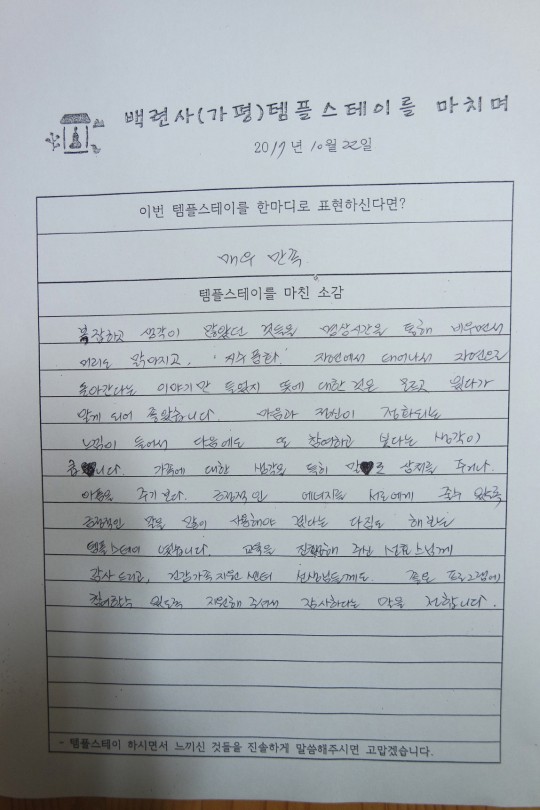 백련사(가평)템플스테이를 마치며
2017년 10월 22일
이번 템플스테이를 한마디로 표현하신다면?
매우 만족
템플스테이를 마친 소감
복잡하고 생각이 많았던 것들을 명상시간을 통해 비우면서
머리도 맑아지고, 자연에서 태어나서 자연으로
돌아간다는 이야기만 들었지 뜻에 대한 것은 모르고 있다가
알게 되어 좋았습니다. 마음과 정신이 정화되는
느낌이 들어서 다음에도 또 참여하고 싶다는 생각이
큽니다. 가족에 대한 생각을 특히 말로 상처를 주거나
아픔을 주기 보다. 긍정적인 에너지를 서로에게 줄수 있도록
긍정적인 말을 많이 사용해야 겠다는 다짐도 해보는
템플스테이 였습니다. 교육을 진행해 주신 스님께
감사드리고, 건강가족지원센터 선생님들께도 좋은 프로그램에
참여할수 있도록 지원해 주셔서 감사하다는 말을 전합니다.
- 템플스테이 하시면서 느끼신 것들을 진솔하게 말씀해주시면 고맙겠습니다.